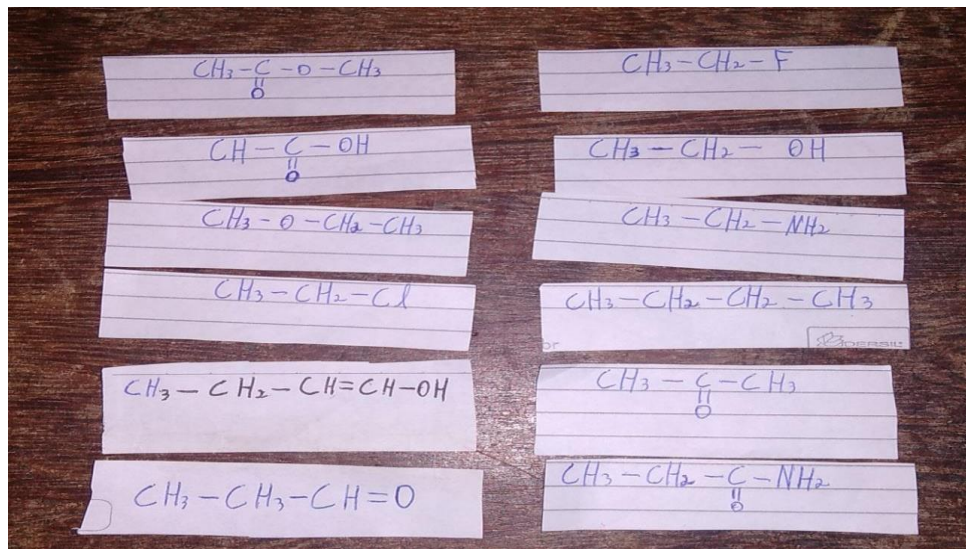 CH3-C-O-CH3
=
O
CH-C-OH
=
O
CH3-O-CH2-CH3
CH3-CH2-Cl
CH3-CH2-CH=CH-OH
CH3-CH3-CH=O
CH3-CH2-F
CH3-CH2-OH
CH3-CH2-NH2
CH3-CH2-CH2-CH3
CH3-C-CH3
=
O
CH3-CH2-C-NH2
=
O